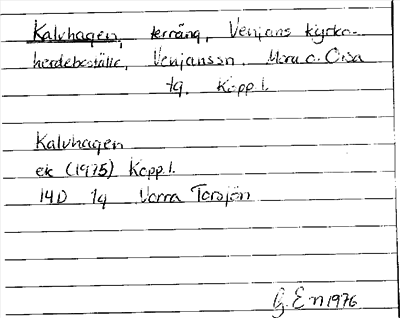 Kalvhagen, terräng, Venjans kyrko-
herdeboställe, Venjanssn. Mora o. Orsa
tg. Kopp.l.
Kalvhagen
ek (1975) Kopp.l.
14D 1g Norra Torsjön
G. E-n 1976